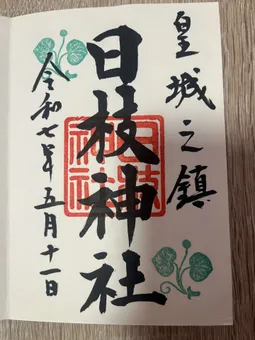 皇城之鎮
日枝神社
令和七年五月十一日
日枝
神社